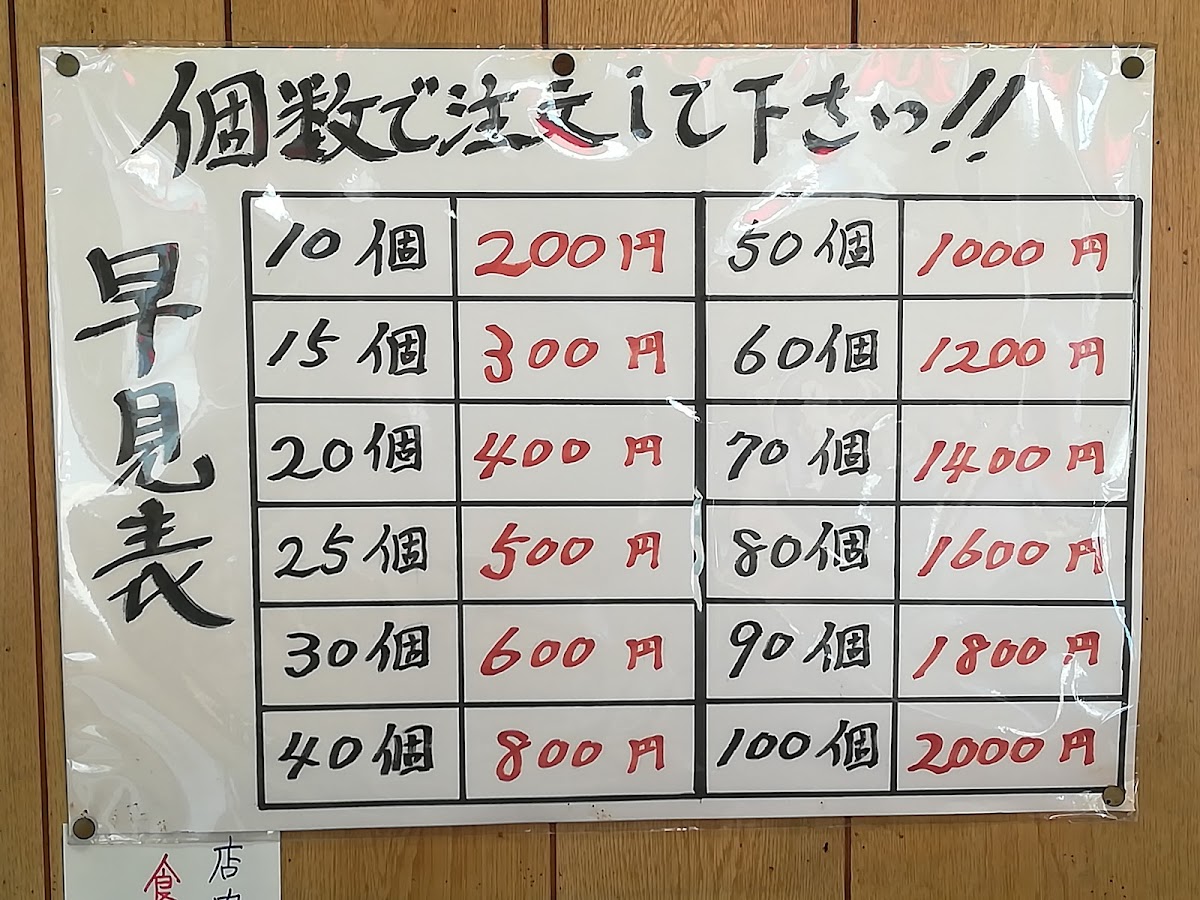 個数で注文して下さい!!
早見表
10個 200円 50個 1000円
15個 300円 60個 1200円
20個 400円 70個 1400円
25個 500円 80個 1600円
30個 600円 90個 1800円
40個 800円 100個 2000円
店内
食